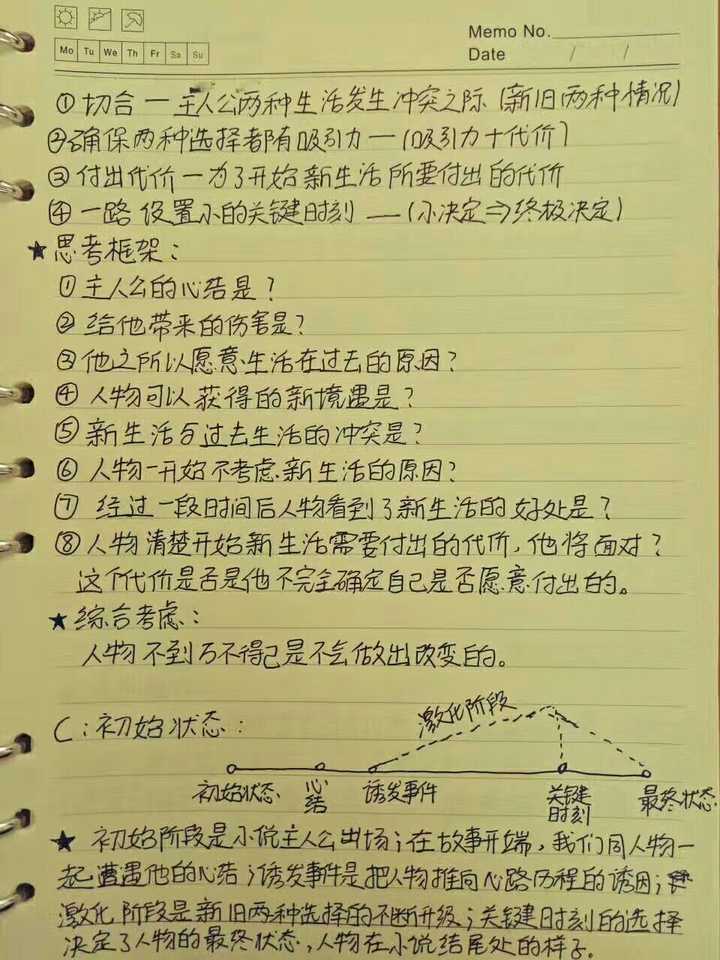 Memo No.
Mo Tu We Th Fr Sa Su
Date / /
①切合一主人公两种生活发生冲突之际(新旧两种情况)
②确保两种选择都有吸引力—(吸引力+代价)
③付出代价一为了开始新生活所要付出的代价
④一路设置小的关键时刻—(小决定⇒终极决定)
★思考框架:
①主人公的心结是?
②给他带来的伤害是?
③他之所以愿意生活在过去的原因?
④人物可以获得的新境遇是?
⑤新生活与过去生活的冲突是?
⑥人物一开始不考虑新生活的原因?
⑦经过一段时间后人物看到了新生活的好处是?
⑧人物清楚开始新生活需要付出的代价,他将面对?
这个代价是否是他不完全确定自己是否愿意付出的。
★综合考虑:
人物不到万不得已是不会做出改变的。
C:初始状态:
激化阶段
初始状态 心结 诱发事件 关键时刻 最终状态
★初始阶段是小说主人公出场;在故事开端,我们同人物一
起遭遇他的心结;诱发事件是把人物推向心路历程的诱因;
激化阶段是新旧两种选择的不断升级;关键时刻的选择
决定了人物的最终状态,人物在小说结尾处的样子。